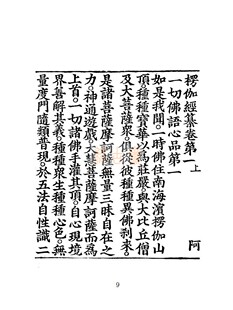 楞伽經纂卷第一上 阿
一切佛語心品第一
如是我聞。一時佛住南海濱楞伽山
頂種種寶華以為莊嚴與大比丘僧
及大菩薩衆。俱從彼種種異佛剎來。
是諸菩薩摩訶薩無量三昧自在之
力。神通遊戲大慧菩薩摩訶薩而為
上首。一切諸佛手灌其頂。自心現境
界善解其義。種種衆生種種心色。無
量度門隨類普現。於五法自性識二
9